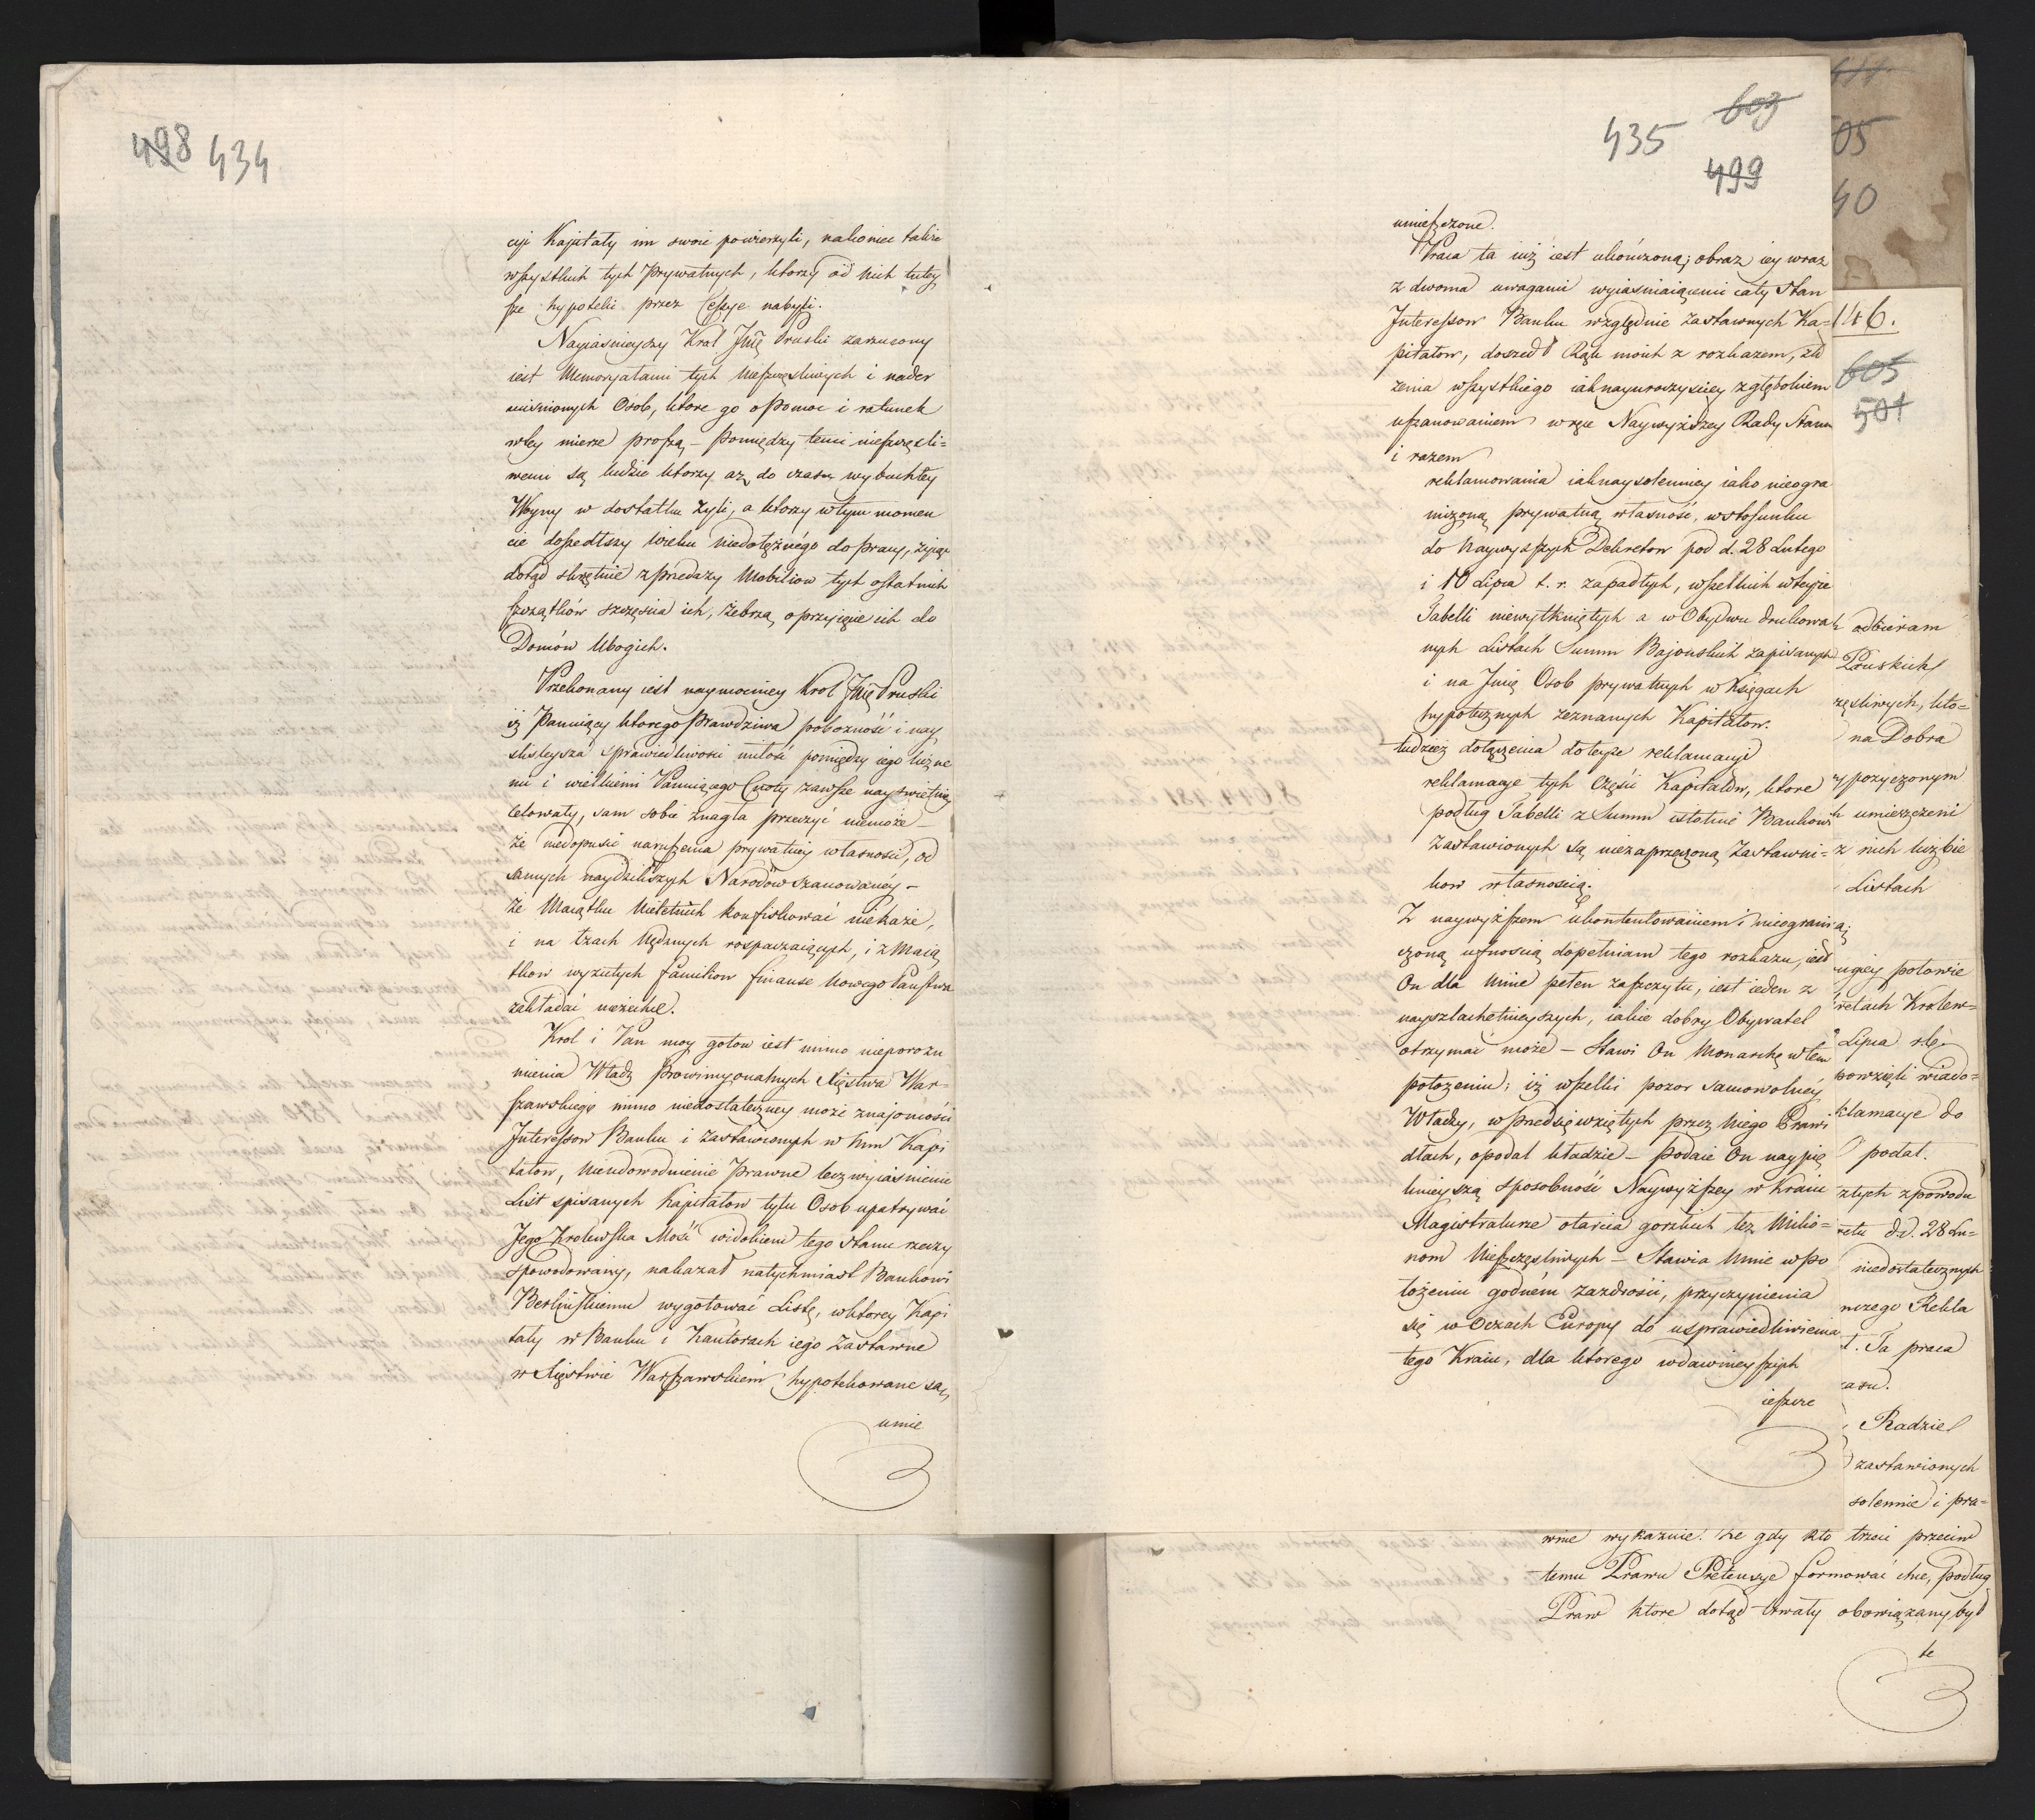 498 434
cyi Kapitały im swoie powierzyli, nakoniec także
wszystkich tych Prywatnych, którzy od nich tutey
sze hypoteki przez Cessye nabyli.
Nayiaśnieyszy Krol Jmę Pruski zarzucony
iest Memoryałami tych nieszczęśliwych i nader
uciśnionych Osob, ktore go o Pomoc i ratunek
w tey mierze proszą, – Pomiędzy temi nieszczęśli=
wemi są ludzie ktorzy aż do czasu wybuchłey
Woyny w dostatku żyli, a ktorzy w tym momen
cie doszedłszy wieku niedołężnego do pracy, żyjąc
dotąd skrzętnie z przedaży Mobiliow tych ostatnich
szczątków szczęścia ich, żebrzą, o przyięcie ich do
Domów Ubogich.
Przekonany iest naymocniey Krol Jmę Pruski
iż Panuiący ktorego Prawdziwa pobożność i nay
ściśleysza sprawiedliwości miłość pomiędzy iego liczne
mi i wielkiemi Panuiącego Cnoty zawsze nayświetniey
celowały, sam sobie znagła przeczyć niemoże –
że niedopuści naruszenia prywatney własności, od
samych naydzikszych Narodów szanowanéy –
że Maiątku Nieletnich konfiskować niekaże,
i na łzach Nędznych rozpaczaiących, i z Maią
tkow wyzutych familiow finanse Nowego Państwa
zakładać niezechce.
Krol i Pan moy gotow iest mimo nieporozu
mienia Władz Prowincyonalnych Xięstwa War=
szawskiego mimo niedostateczney może znajomości
Interessow Banku i zastawionych w nim Kapi
tałow, Nieudowodnienie Prawne lecz wyiaśnienie
List spisanych Kapitałow tylu Osob upatrywać
Jego Krolewska Mość widokiem tego stanu rzeczy
spowodowany, nakazał natychmiast Bankowi
Berlińskiemu wygotować Listę, w ktorey Kapi
tały w Banku i Kantorach iego Zastawne
w Xięstwie Warszawskiém hypotekowane są,
umie
435 603
499
umieszczone.
Praca ta iuż iest ukończoną; obraz iey wraz
z dwoma uwagami wyiaśniaiącemi cały Stan
Interessow Banku względnie zastawnych Ka=
pitałow, doszedł Rąk moich z rozkazem, zło
żenia wszystkiego iak nayuroczyściey z głębokiem
uszanowaniem w ręce Naywyższey Rady Stanu
i razem
reklamowania iak naysolenniey iako nieogra
niczoną prywatną własność, w stosunku
do Naywyższych Dekretow pod d. 28 Lutego
i 10 Lipca t. r. zapadłych, wszelkich w teyże
Tabelli niewytkniętych a w Obydwu drukowa
nych Listach Summ Bajońskich zapisanych
i na Jmię Osob prywatnych w Księgach
hypotecznych zeznanych Kapitałow.
tudzież dołączenia do teyże reklamacyi
reklamacye tych Części Kapitałow, ktore
podług Tabelli z Summ istotnie Bankowi
Zastawionych są niezaprzeczoną Zastawni=
kow własnością.
Z naywyższem ukontentowaniem i nieograni
czoną ufnością dopełniam tego rozkazu, iest
On dla Mnie pełen zaszczytu, iest ieden z
nayszlachetnieyszych, iakie dobry Obywatel
otrzymać może – Stawi On Monarchę w tem
położeniu; iż wszelki pozor samowolnéy
Władzy, w przedsięwziętych przez Niego Prawi
dłach, opodal kładzie – Podaie On naypię
knieyszą sposobność Naywyższey w Kraiu
Magistraturze otarcia gorzkich łez Milio=
nom Nieszczęśliwych – Stawia Mnie w Po
łożeniu godném zazdrości, przyczynienia
się w Oczach Europy do usprawiedliwienia
tego Kraiu, dla ktorego w dawnieyszych
ieszcze
05
40
146.
605
501
odbieram
Pruskich
zęśliwych, kto=
na Dobra
pożyczonym
umieszczeni
z nich liczbie
Listach
ugiey połowie
retach Krolew=
Lipca
powzięli wiado=
klamacye do
podał.
złych z powodu
retu d. d. 28 Lu=
niedostatecznych
nczego Rekla
Ta praca
zasu.
Radziel
zastawionych
solennie i pra=
wnie wykazuie. że gdy kto trzeci przeciw
temu Prawu Pretensye formować chce, Podług
Praw ktore dotąd trwały obowiązany był
te